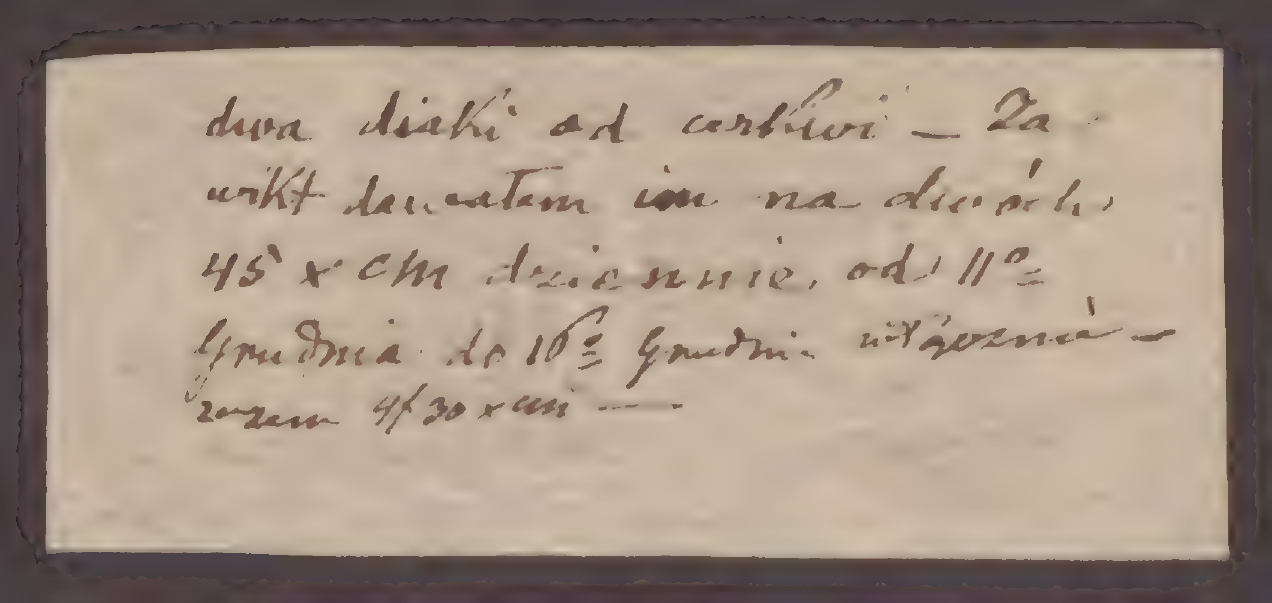 dwa diaki od cerkwi — Za
wikt dawałam im na dwóch
45 x CM dziennie, od 11º
Grudnia do 16º Grudnia włącznie —
razem 4f 30 x CM —